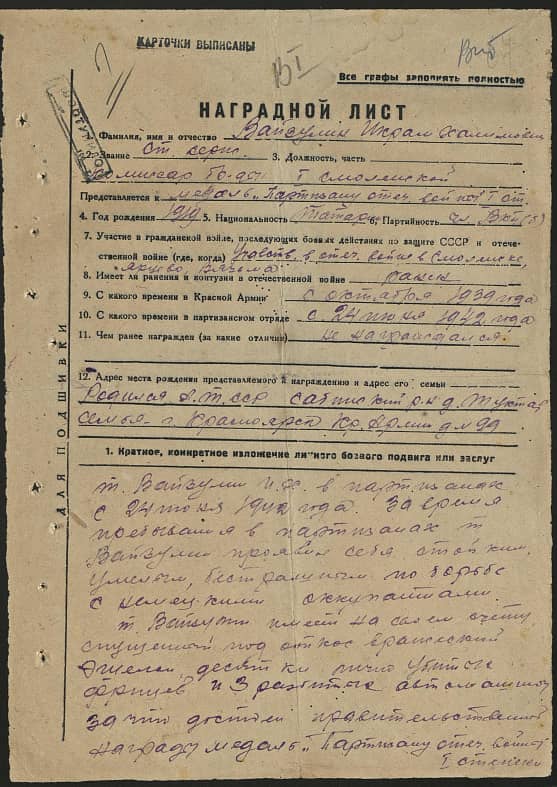 КАРТОЧКИ ВЫПИСАНЫ
В I
Все графы заполнять полностью
НАГРАДНОЙ ЛИСТ
1. Фамилия, имя и отчество Вайзулин Икрам Халимович
2. Звание Ст. серж. 3. Должность, часть
комиссар I Смоленской
Представляется к медаль "Партизану отеч. войны" I ст.
4. Год рождения 1919 5. Национальность Татар. 6. Партийность чл. ВКП(б)
7. Участие в гражданской войне, последующих боевых действиях по защите СССР и отече-
ственной войне (где, когда) Участв. в отеч. войне в Смоленске,
Вязьма
8. Имеет ли ранения и контузии в отечественной войне ранен
9. С какого времени в Красной Армии С октября 1939 года
10. С какого времени в партизанском отряде с 24 июня 1942 года
11. Чем ранее награжден (за какие отличия) не награждался
12. Адрес места рождения представляемого к награждению и адрес его семьи
Родился А.Т.ССР Сабинский р-н д.
Семья - г. Красноярск Кр. Армии д. № 99
ДЛЯ ПОДШИВКИ
1. Краткое, конкретное изложение личного боевого подвига или заслуг
т. Вайзулин И.Х. в партизанах
с 24 июня 1942 года. За время
пребывания в партизанах т.
Вайзулин проявил себя стойким,
умелым, бесстрашным по борьбе
с немецкими оккупантами.
т. Вайзулин имеет на своем счету
спущенный под откос вражеский
эшелон, десятки лично убитых
фрицев и 3 разбитых автомашины
за что достоин правительственной
награды медаль "Партизану отеч. войны"
I степени